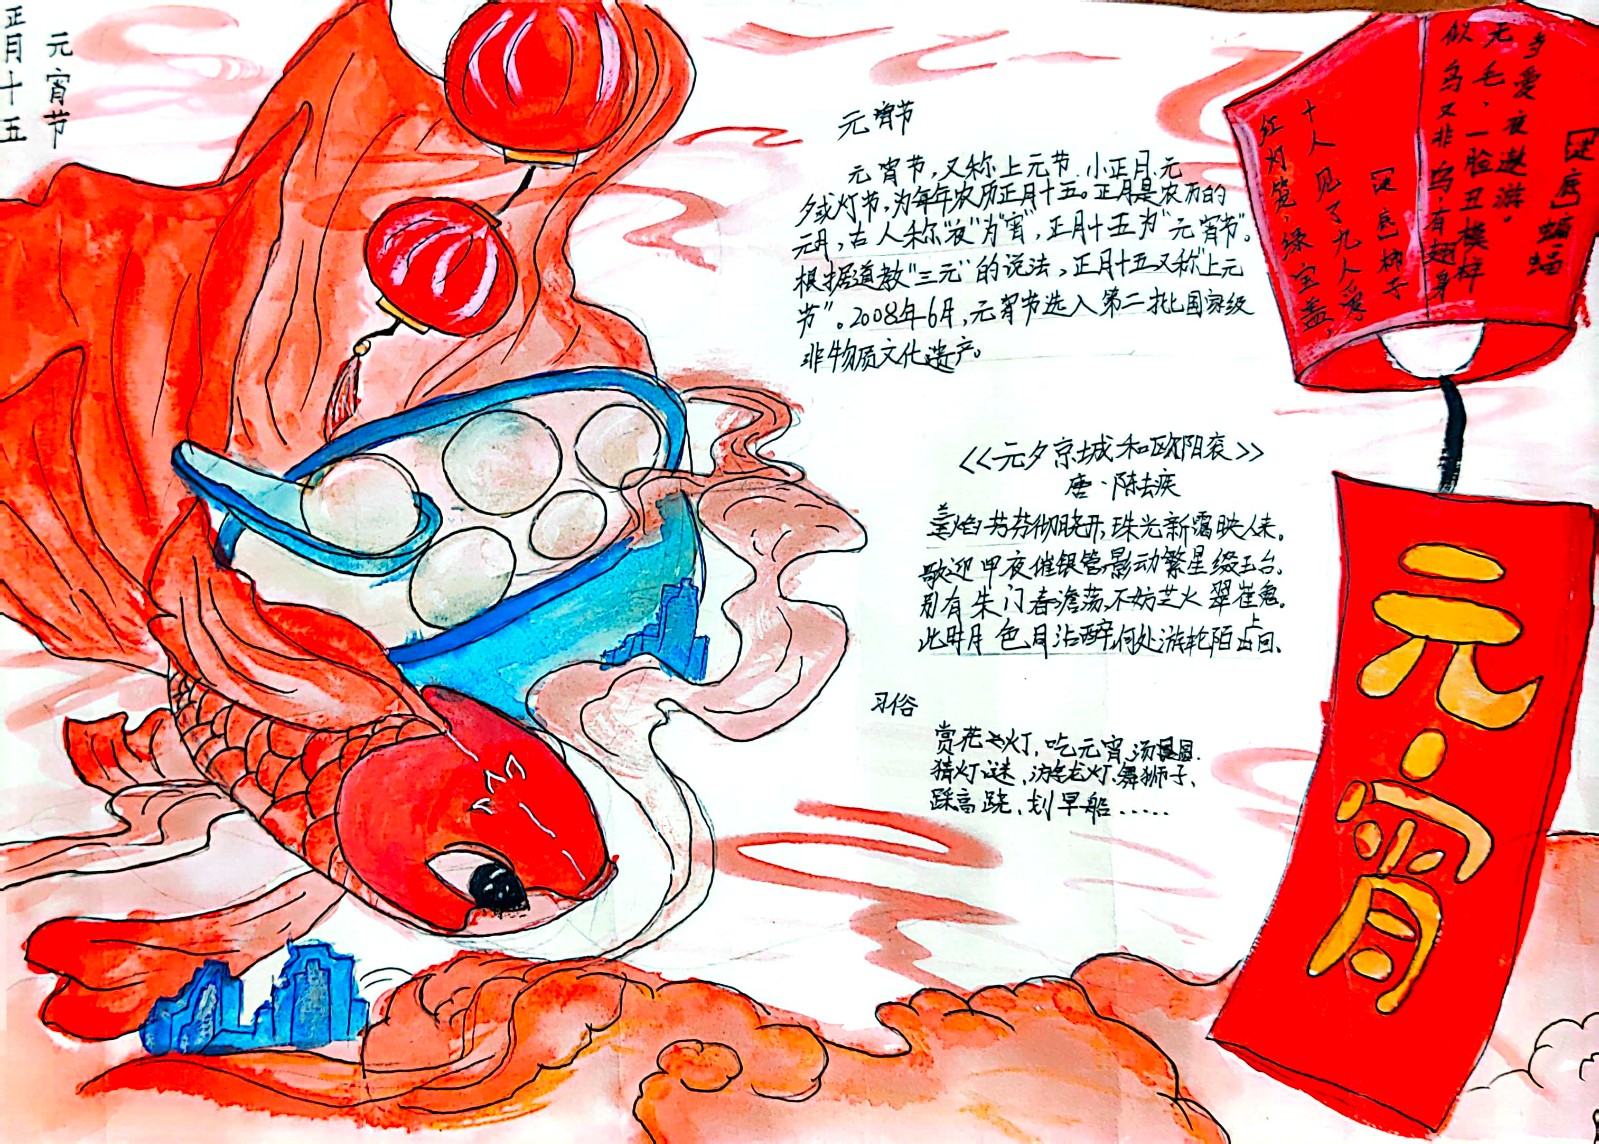 正月十五
元宵节
元宵节
元宵节,又称上元节.小正月.元
夕或灯节,为每年农历正月十五。正月是农历的
元月,古人称"夜"为"宵",正月十五为"元宵节"。
根据道教"三元"的说法,正月十五又称"上元
节"。2008年6月,元宵节选入第二批国家级
非物质文化遗产。
<<元夕京城和欧阳衮>>
唐·陈去疾
兰焰芳芬彻晓开,珠光新霭映人来。
歌迎甲夜催银管,影动繁星缀玉台.
别有朱门春澹荡,不妨芝火翠崔嵬。
此时月色同沾醉,何处游轮陌上回.
习俗
赏花灯,吃元宵汤圆.
猜灯谜,游龙灯.舞狮子,
踩高跷,划旱船......
似鸟又非鸟,有翅身
无毛,一脸丑模样
专爱夜遨游。
[谜底]蝙蝠
红灯笼,绿宝盖,
十人见了九人爱
[谜底]柿子
元·宵